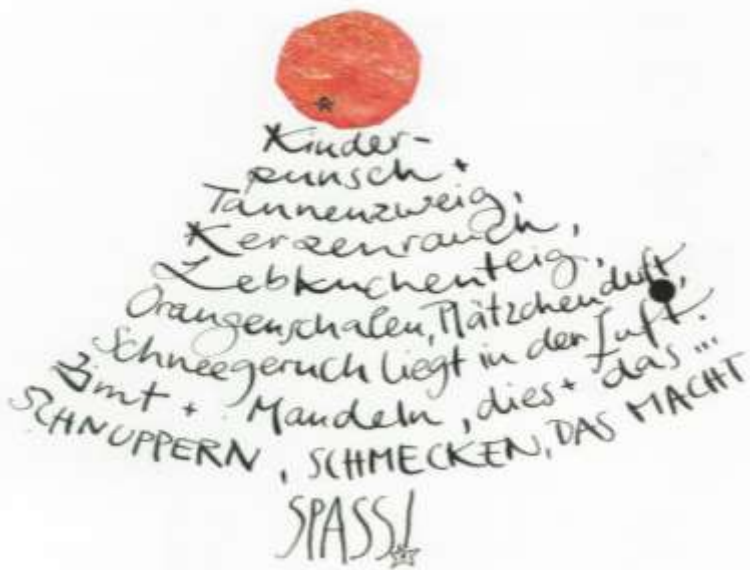 Kinder-
punsch +
Tannenzweig,
Kerzenrauch,
Lebkuchenteig,
Orangenschalen, Plätzchenduft,
Schneegeruch liegt in der Luft.
Zimt + Mandeln, dies + das ...
SCHNUPPERN, SCHMECKEN, DAS MACHT
SPASS!